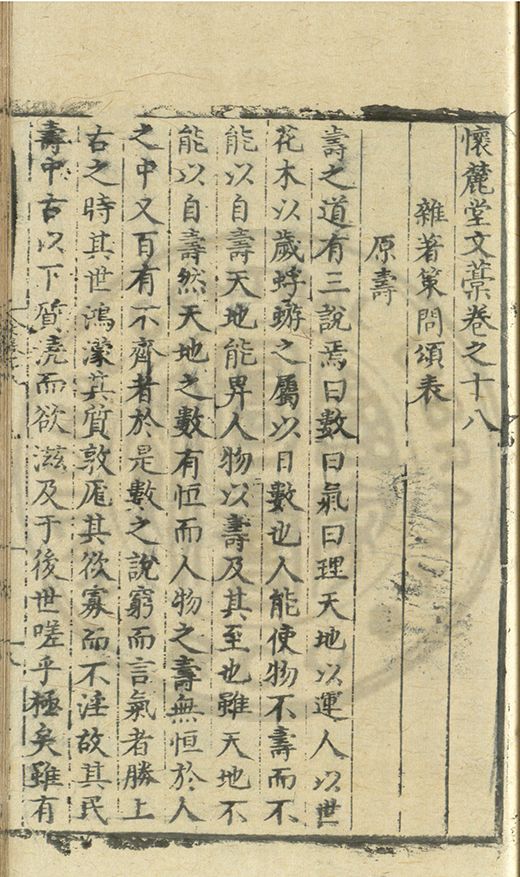 懷麓堂文藁卷之十八
雜著策問頌表
原壽
壽之道有三說焉曰數曰氣曰理天地以運人以世
花木以歲蜉蝣之屬以日數也人能使物不壽而不
能以自壽天地能畀人物以壽及其至也雖天地不
能以自壽然天地之數有恒而人物之壽無恒於人
之中又百有不齊者於是數之說窮而言氣者勝上
古之時其世鴻濛其質敦厖其欲寡而不淫故其民
壽中古以下質澆而欲滋及于後世嗟乎極矣雖有